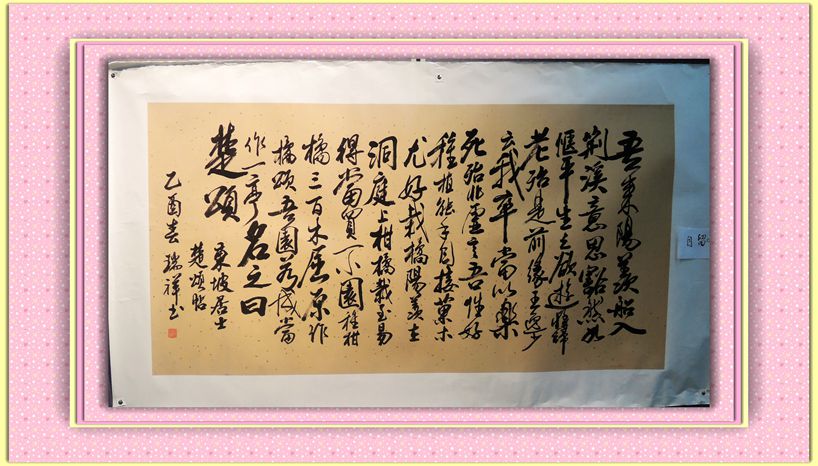 吾来陽羡船入
荆溪意思豁然如
惬平生之欲逝将歸
老殆是前缘王逸少
云我卒當以樂
死殆非虚言吾性好
種植能手自接菓木
尤好栽橘陽羡在
洞庭上柑橘栽至易
得當買一小園種柑
橘三百本屈原作
橘頌吾園若成當
作一亭名之曰
楚頌
東坡居士
楚頌帖
乙酉春瑞祥书